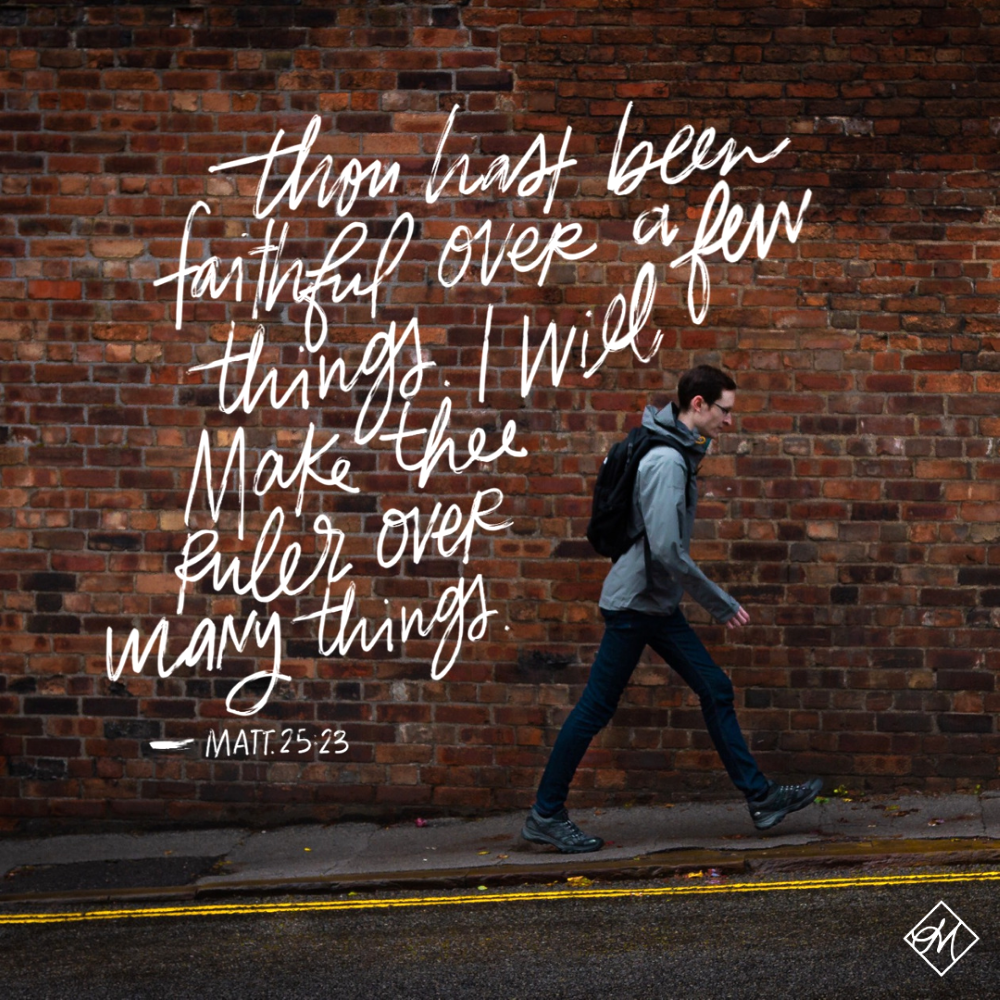 thou hast been
faithful over a few
things. I will
Make thee
Ruler over
many things.
— MATT. 25:23
M